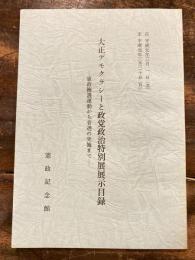 自 平成元年二月一日(水)
至 平成元年二月二十日(月)
大正デモクラシーと政党政治特別展展示目録
―憲政擁護運動から普選の実施まで―
憲政記念館